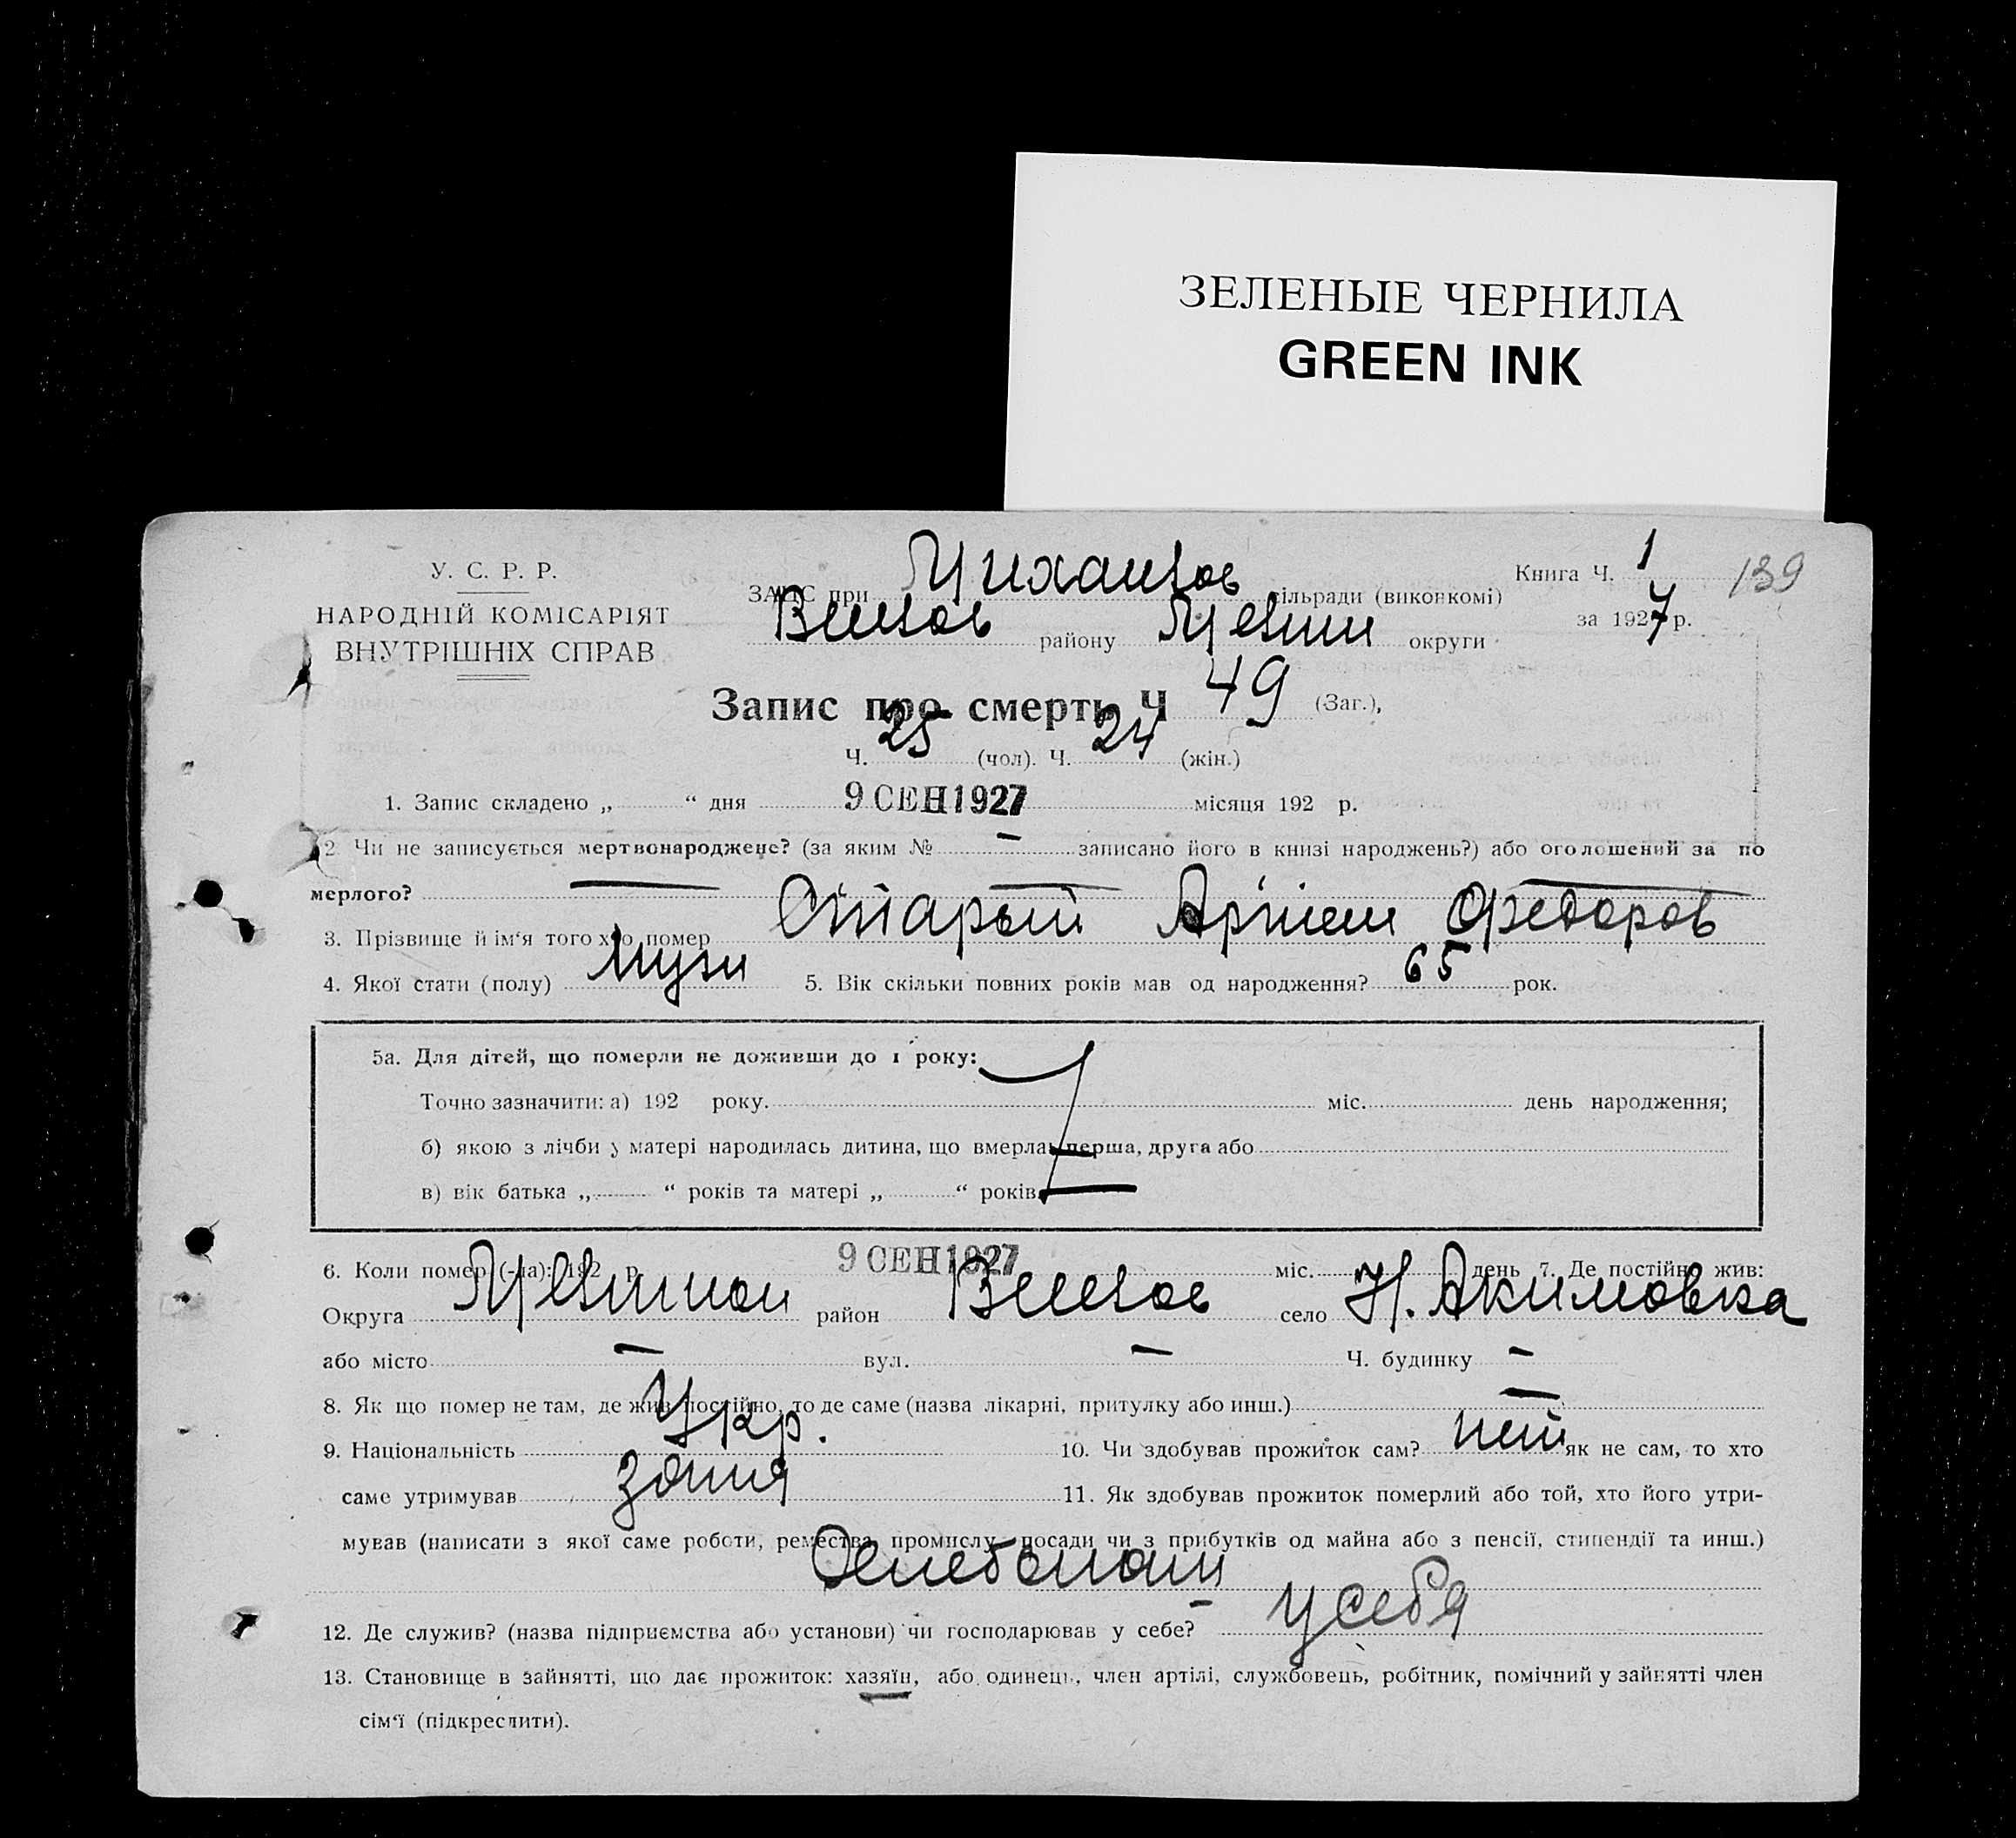 ЗЕЛЕНЫЕ ЧЕРНИЛА
GREEN INK
У. С. Р. Р.
НАРОДНІЙ КОМІСАРІЯТ
ВНУТРІШНІХ СПРАВ
ЗАПИС при сільради (виконкомі)
району округи
Книга Ч. 1
139
за 1927 р.
Запис про смерть Ч 49 (Заг.),
Ч. 25 (чол). Ч. 24 (жін.)
1. Запис складено „ “ дня 9 СЕН 1927 місяця 192 р.
2. Чи не записується мертвонароджене? (за яким № — записано його в книзі народжень?) або оголошений за по
мерлого?
3. Прізвище й ім‘я того хто помер Старый Артем Федоров
4. Якої стати (полу) Муж 5. Вік скільки повних років мав од народження? 65 рок.
5а. Для дітей, що померли не доживши до 1 року:
Точно зазначити: а) 192 року. міс. день народження;
б) якою з лічби у матері народилась дитина, що вмерла: перша, друга або
в) вік батька „ “ років та матері „ “ років
6. Коли помер (-ла): 192 р. 9 СЕН 1927 міс. день 7. Де постійно жив:
Округа район село Н. Акимовка
або місто — вул. — Ч. будинку —
8. Як що помер не там, де жив постійно, то де саме (назва лікарні, притулку або инш.) —
9. Національність Укр. 10. Чи здобував прожиток сам? нет як не сам, то хто
саме утримував зятя 11. Як здобував прожиток померлий або той, хто його утри-
мував (написати з якої саме роботи, ремества, промислу, посади чи з прибутків од майна або з пенсії, стипендії та инш.)
12. Де служив? (назва підприємства або установи) чи господарював у себе? у себя
13. Становище в зайнятті, що дає прожиток: хазяїн, або одинець, член артілі, службовець, робітник, помічний у зайнятті член
сім‘ї (підкреслити).